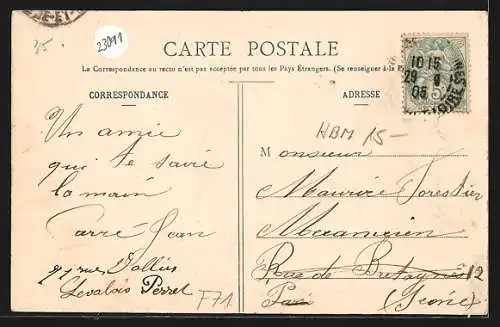 23099
35.
CARTE POSTALE
La Correspondance au recto n'est pas acceptée par tous les Pays Étrangers. (Se renseigner à la P
CORRESPONDANCE
ADRESSE
10 15
29
05
HBM 15-
Un amie
qui te serre
la main
Carré Jean
rue
Levalois Perret
F71
Monsieur
Maurice Forestier
Mecanicien
Rue de Bretagne 12
(Seine)